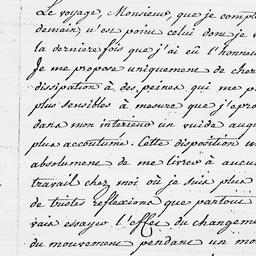 Le voyage, Monsieur, que je compt
demain, n'est point celui dont je v
la derniere fois que j'ai eû l'honneu
Je me propose uniquement de cher
dissipation à des peines qui me pa
plus sensibles à mesure que j'epro
dans mon interieur un vuide auqu
plus accoutumé. Cette disposition m
absolument de me livrer à aucun
travail chez moi où je suis plus
de tristes reflexions que partout
vais essayer l'effet du changeme
du mouvement pendant un mo